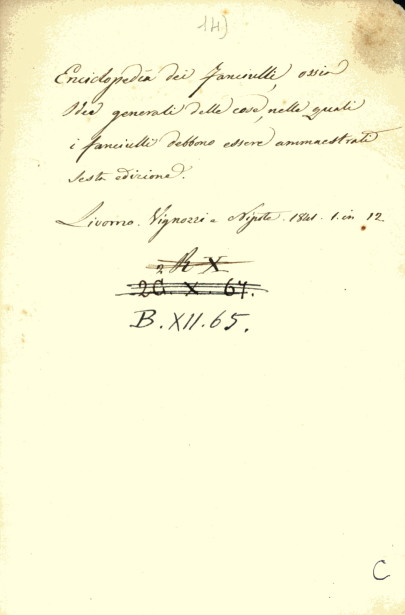 14)
Enciclopedia dei Fanciulli, ossia
Idee generali delle cose, nelle quali
i fanciulli debbono essere ammaestrati
sesta edizione.
Livorno. Vignozzi e Nipote. 1841. 1. in 12
2 R X
2C. X. 67.
B. XII. 65.
C